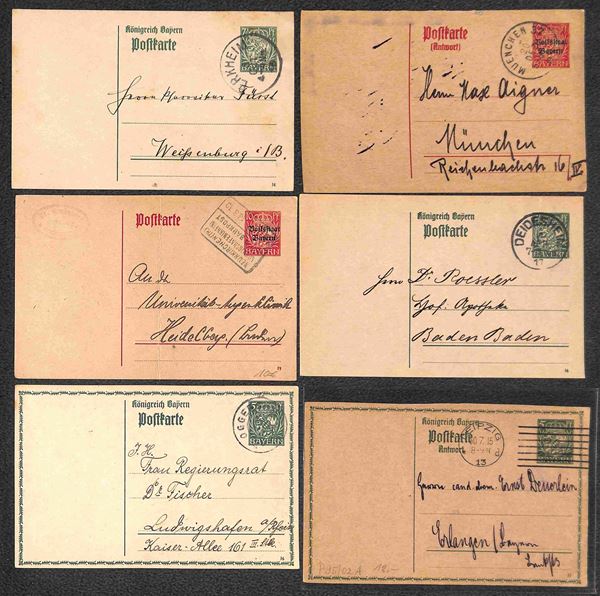 Königreich Bayern
Postkarte
BAYERN
ERKHEIM
Herrn Pfarrvikar Fürst
Weißenburg i/B.
Postkarte
(Antwort)
MUENCHEN
Volksstaat
Bayern
Herrn Max Aigner
München
Reichenbachstr 16/IV
Postkarte
Volksstaat
Bayern
BAYERN
BAHNPOST
An die
Universitäts-Augenklinik
Heidelberg. (Baden)
Königreich Bayern
Postkarte
BAYERN
DEIDESHEIM
Herrn Dr. Roessler
Hof. Apotheke
Baden Baden
Königreich Bayern
Postkarte
BAYERN
OGGE
I. H.
Frau Regierungsrat
Dr Fischer
Ludwigshafen a/Rhein
Kaiser-Allee 161 III. Stk.
Königreich Bayern
Postkarte
Antwort
LEIPZIG
8-9N
13
Herrn cand. chem. Ernst Deuerlein
Erlangen/Bayern
12.-